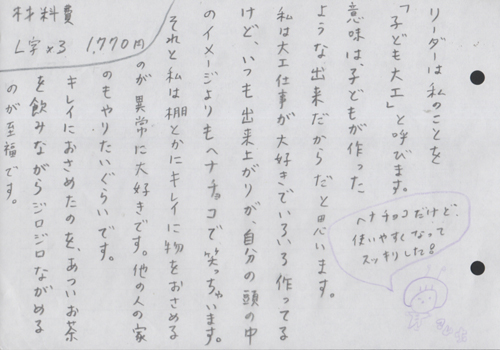 リーダーは私のことを
「子ども大工」と呼びます。
意味は、子どもが作った
ような出来だからだと思います。
私は大工仕事が大好きでいろいろ作ってる
けど、いつも出来上がりが、自分の頭の中
のイメージよりもヘナチョコで笑っちゃいます。
それと私は棚とかにキレイに物をおさめる
のが異常に大好きです。他の人の家
のもやりたいぐらいです。
キレイにおさめたのを、あついお茶
を飲みながらジロジロながめる
のが至福です。
材料費
L字×3 1,770円
ヘナチョコだけど、
使いやすくなって
スッキリした!